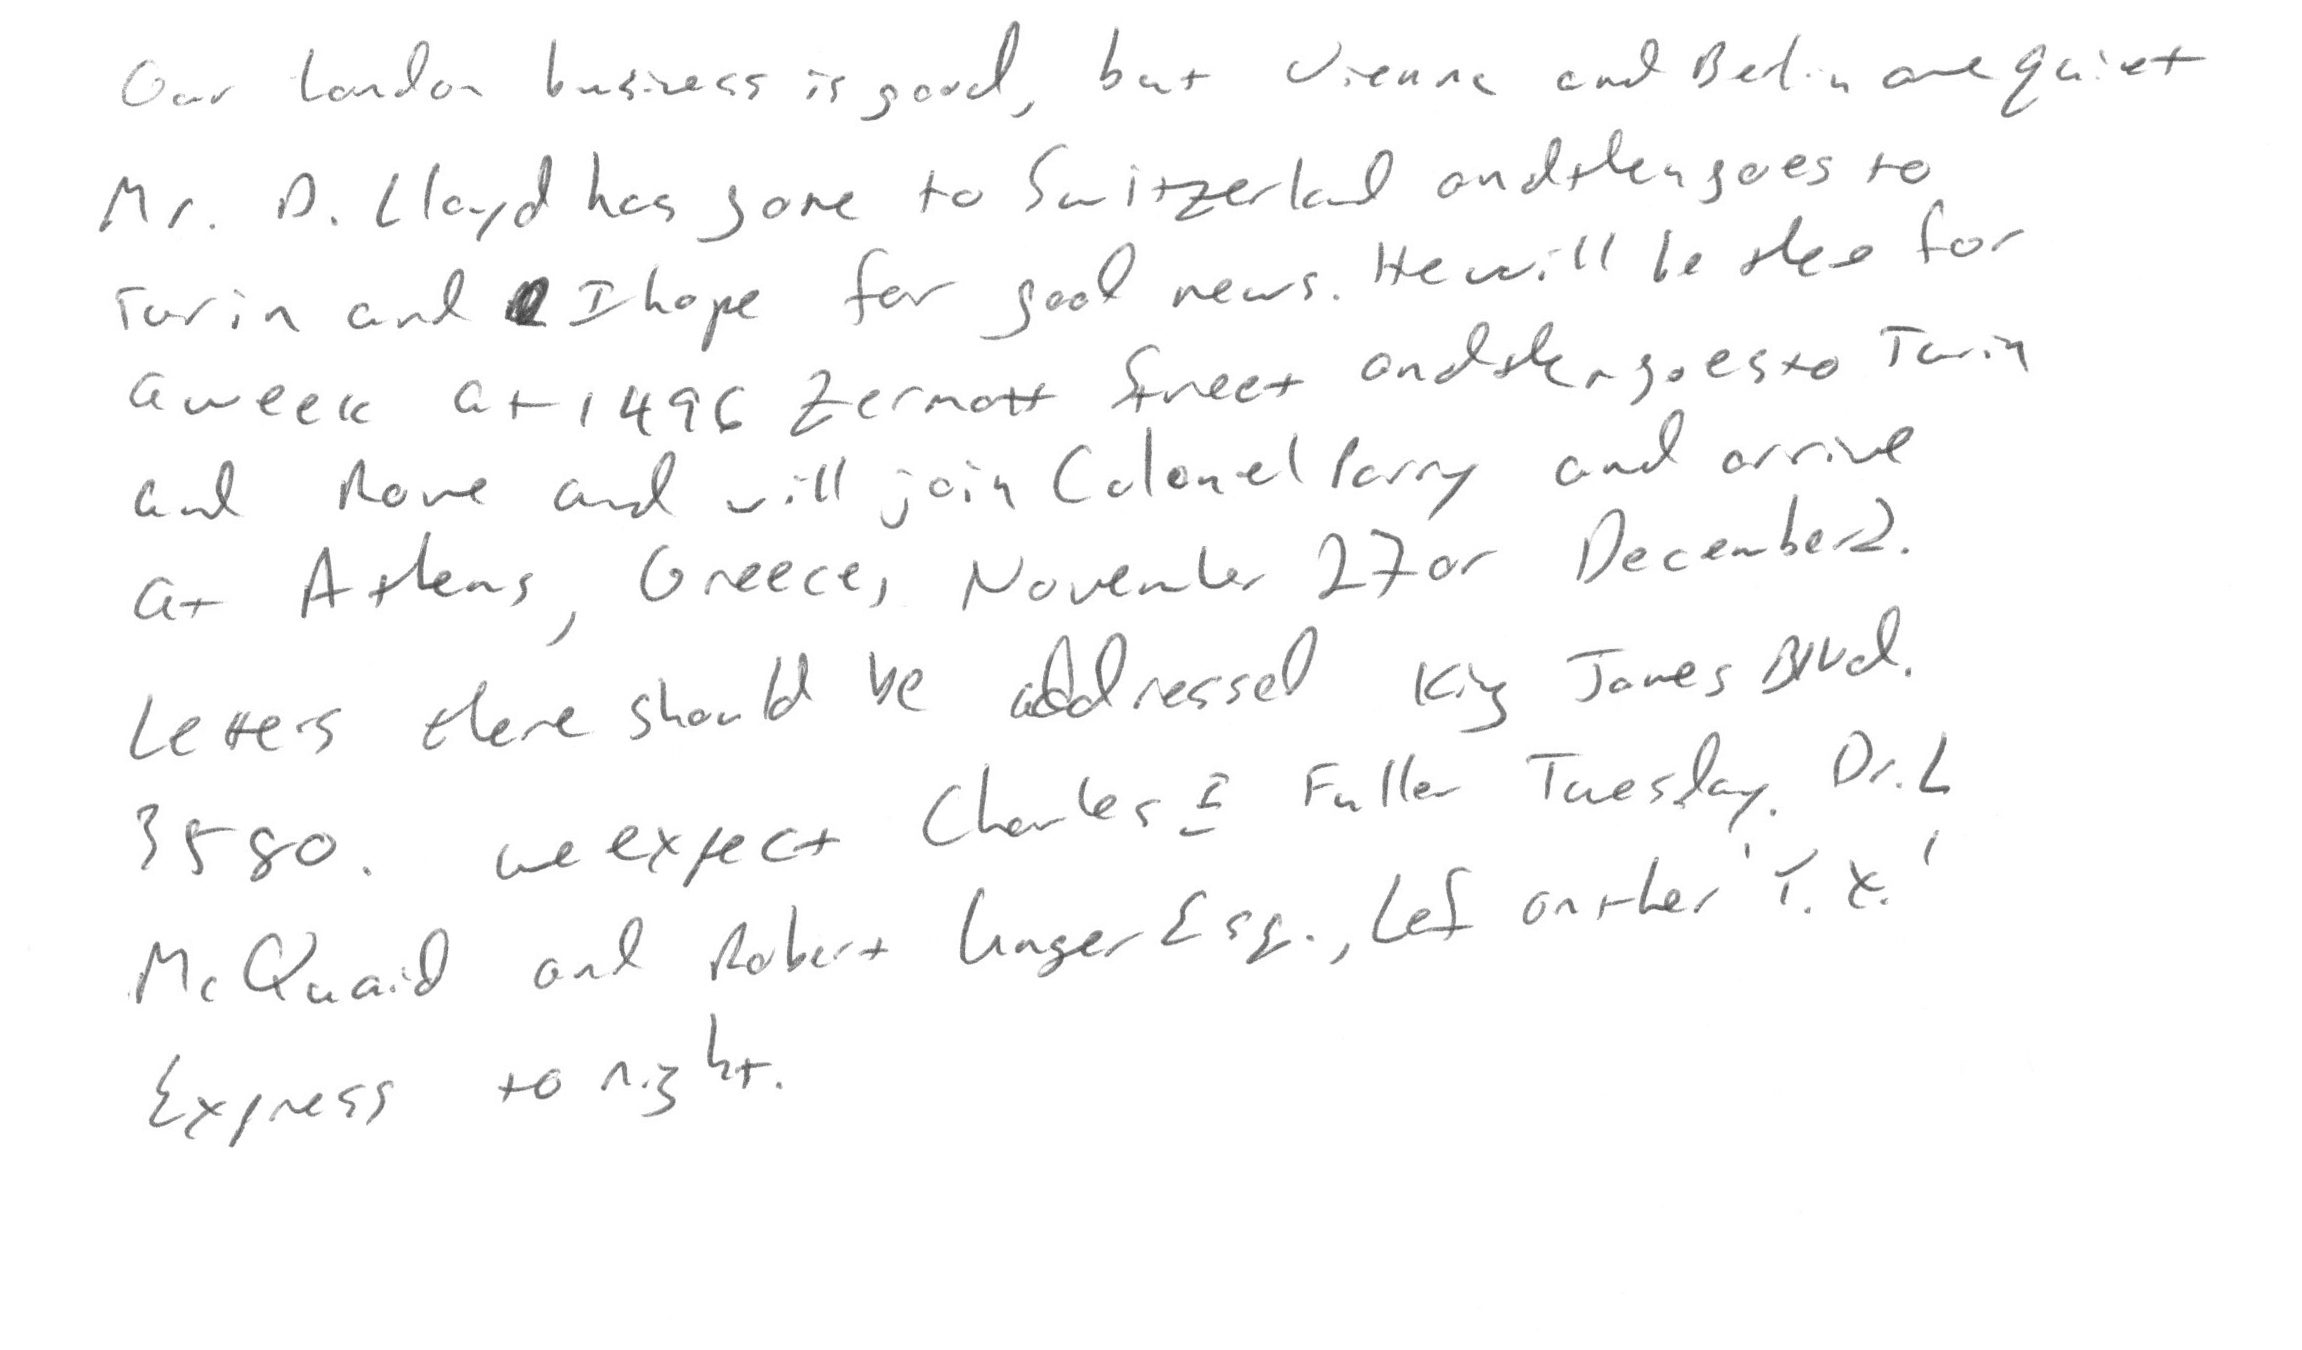 Our London business is good, but Vienna and Berlin are quiet
Mr. D. Lloyd has gone to Switzerland and then goes to
Turin and I hope for good news. He will be there for
a week at 1496 Zermott Street and then goes to Turin
and Rome and will join Colonel Parry and arrive
at Athens, Greece, November 27 or December 2.
Letters there should be addressed King James Blvd.
3580. we expect Charles E Fuller Tuesday. Dr. L
McQuaid and Robert Unger Esq., Left on ther 'Y.X.'
Express tonight.